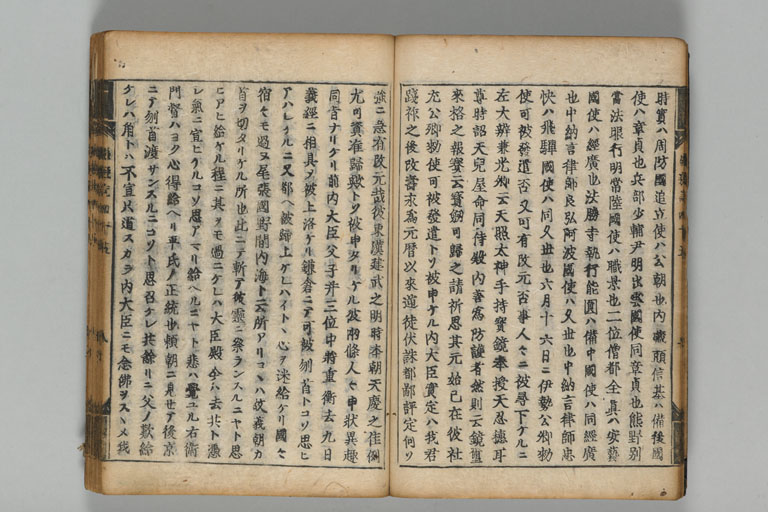 時實ハ周防國追立使ハ公朝也内藏頭信基ハ備後國
使ハ章貞也兵部少輔尹明出雲國使同章貞也熊野別
當法眼行明常陸國使ハ職景也二位僧都全眞ハ安藝
國使ハ經廣也法勝寺執行能圓ハ備中國使ハ同經廣
也中納言律師良弘阿波國使ハ久世也中納言律師忠
快ハ飛驒國使ハ同久世也六月十六日ニ伊勢公卿勅
使可被發遣否又可有改元否事人々ニ被尋下ケルニ
左大辨兼光卿云天照太神手持寳鏡奉授天忍穗耳
尊時詔天兒屋命同侍殿内善爲防護者然則云鏡璽
來格之報賽云寳劔可歸之請祈思其元始已在彼社
尤公卿勅使可被發遣トソ被申ケル内大臣實定ハ我君
踐祚之後改壽永爲元暦以來逆徒伏誅都鄙評定何ソ
強ニ急有改元哉後東漢建武之明時本朝天慶之佳例
尤可實准歸歟トソ被申タリケル彼兩條人々申状異趣
同音ナリケリ前内大臣父子并三位中將重衡去九日
義經ニ相具ソ被上洛ケリ鎌倉ニテ可被刎首トコソ思ヒ
アハレケルニ又都ヘ被歸上ケレハイトヽ心ヲ迷給ケリ國々
宿々モ過ヌ尾張國野間内海ト云所アリコヽハ故義朝カ
首ヲ切タリケル所也此ニテ斬テ彼靈ニ祭ランスルニヤト思
ヒアヒ給ケル程ニ其ヲモ過ニケレハ大臣殿今ハ去共ト憑
レ氣ニ宣ヒケルコソ思アマリ給ヘルニヤト悲ハ覺ユル右衛
門督ハヨク心得給ヘリ平氏ノ正統也頼朝ニ見セテ後京
ニテ刎首渡サンスルニコソト思召ケレ共餘リニ父ノ歎給
ケレハ角トハ不宣只道スカラ内大臣ニモ念佛ヲスヽメ我